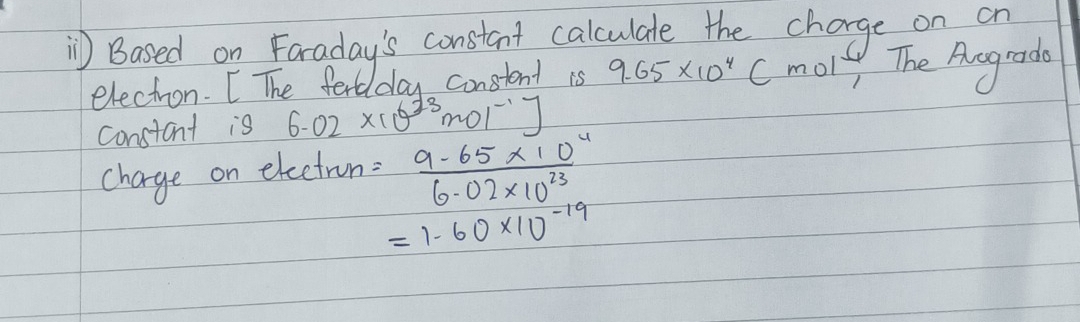 ii) Based on Faraday's constant calculate the charge on an
electron. [ The farday constant is 9.65 × 10⁴ C mol⁻¹, The Avogrado
constant is 6.02 × 10²³ mol⁻¹ ]
Charge on electron = 9.65 × 10⁴
6.02 × 10²³
= 1.60 × 10⁻¹⁹